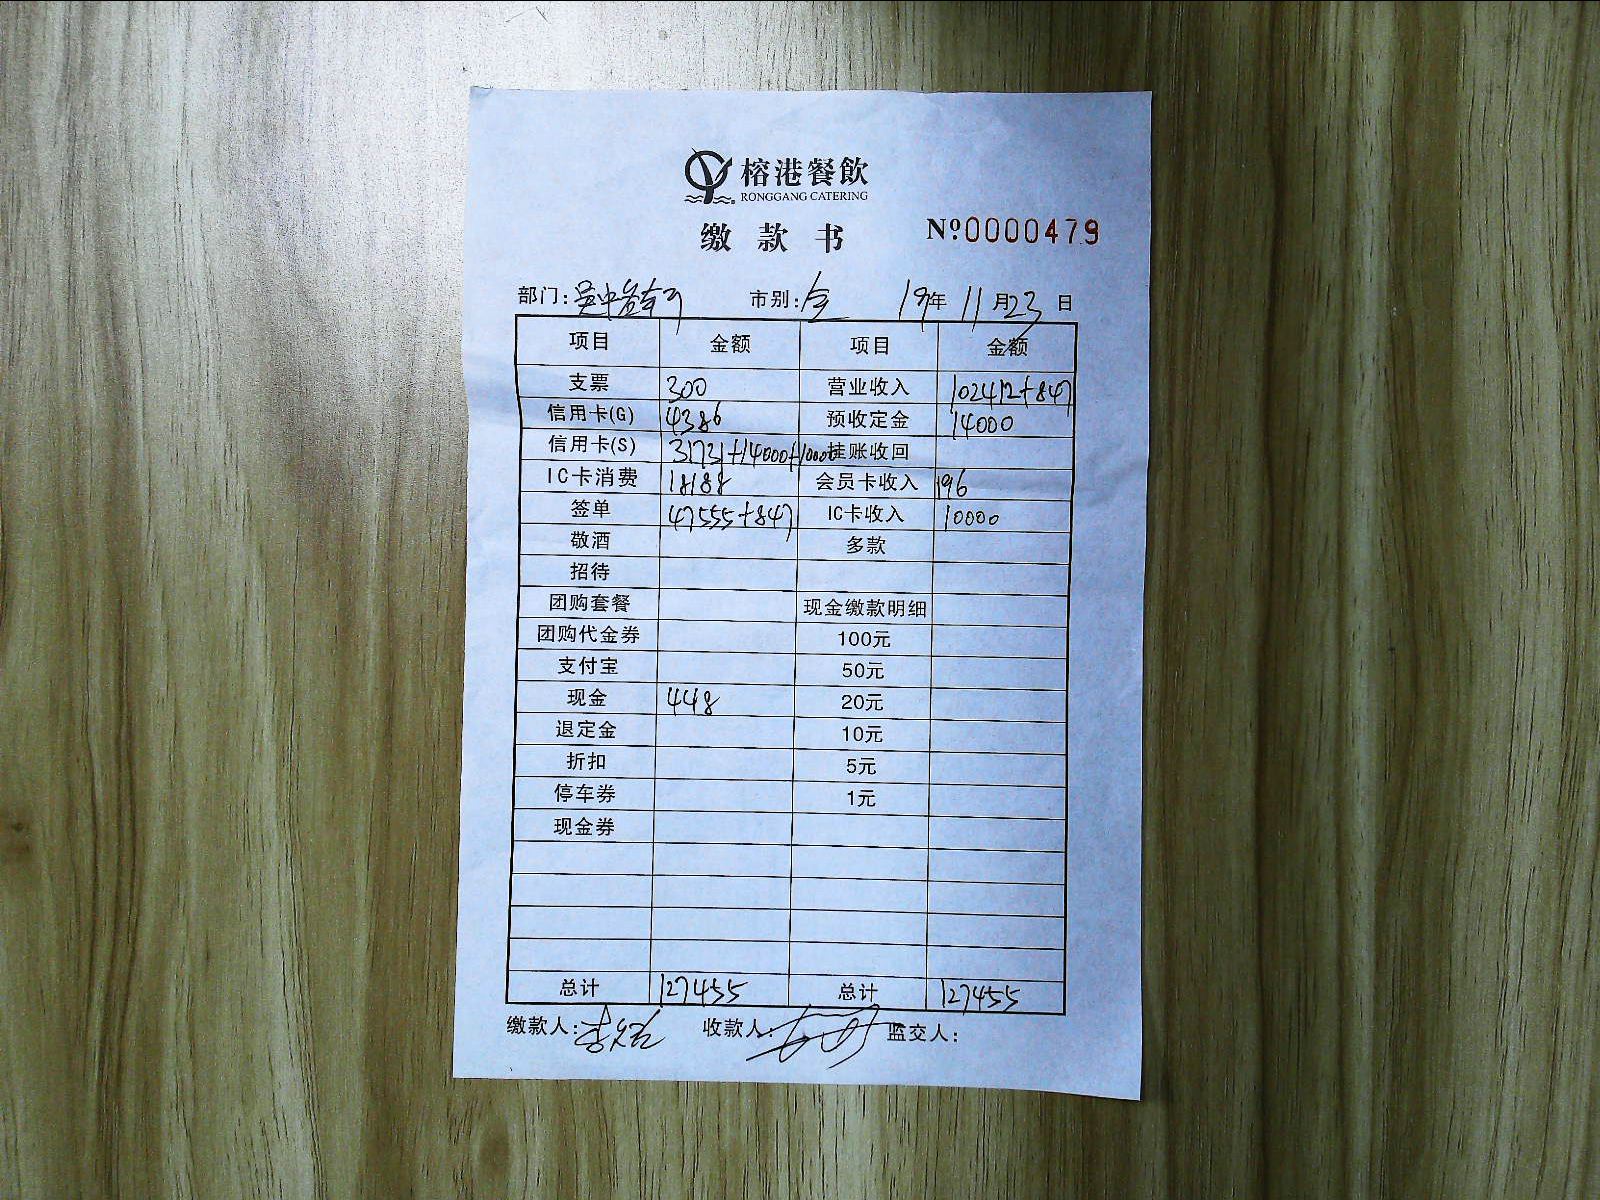 榕港餐飲
RONGGANG CATERING
缴款书 №0000479
部门: 市别:全 19年11月23日
项目 金额 项目 金额
支票 300 营业收入 102412+847
信用卡(G) 4386 预收定金 14000
信用卡(S) 31731+14000+10000 挂账收回
IC卡消费 18188 会员卡收入 196
签单 47555+847 IC卡收入 10000
敬酒 多款
招待
团购套餐 现金缴款明细
团购代金券 100元
支付宝 50元
现金 448 20元
退定金 10元
折扣 5元
停车券 1元
现金券
总计 127455 总计 127455
缴款人: 收款人: 监交人: